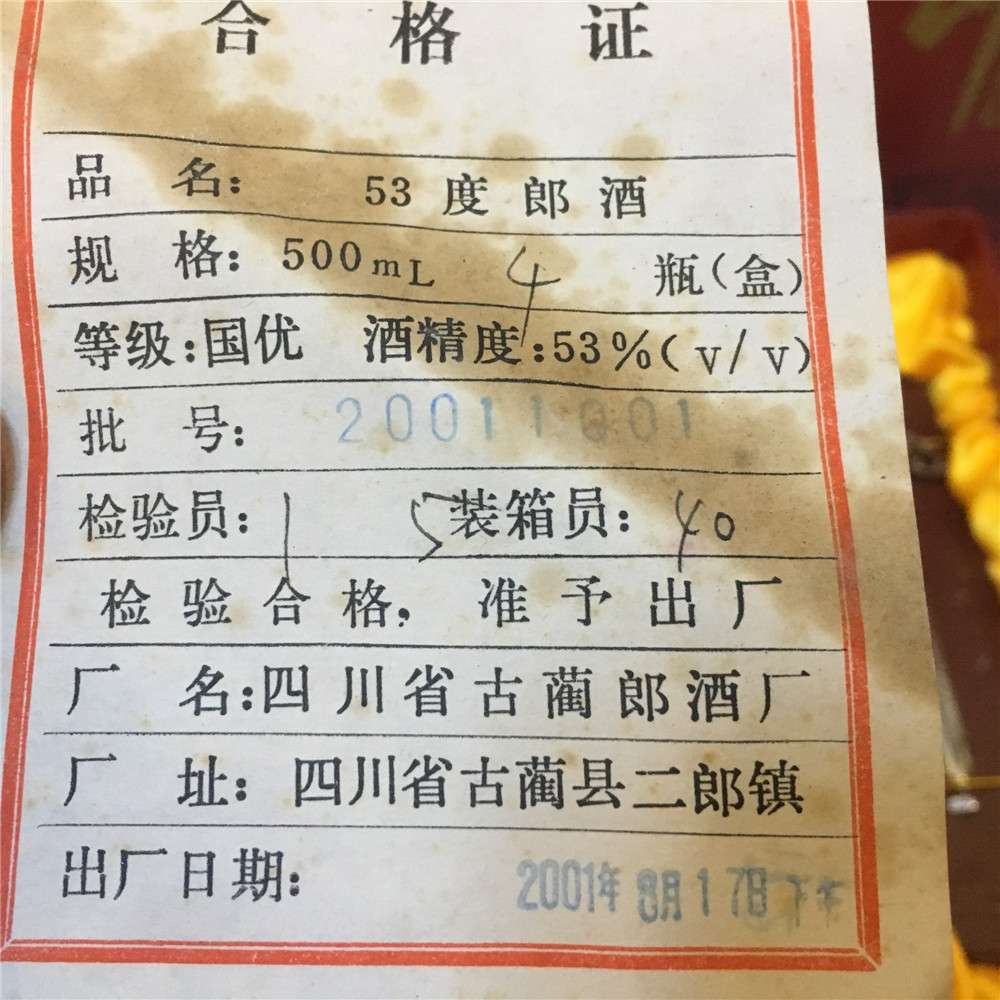 合格证
品名：53度郎酒
规格：500mL 4 瓶（盒）
等级：国优 酒精度：53%（v/v）
批号：20011001
检验员：15 装箱员：40
检验合格，准予出厂
厂名：四川省古蔺郎酒厂
厂址：四川省古蔺县二郎镇
出厂日期：2001年8月17日下午